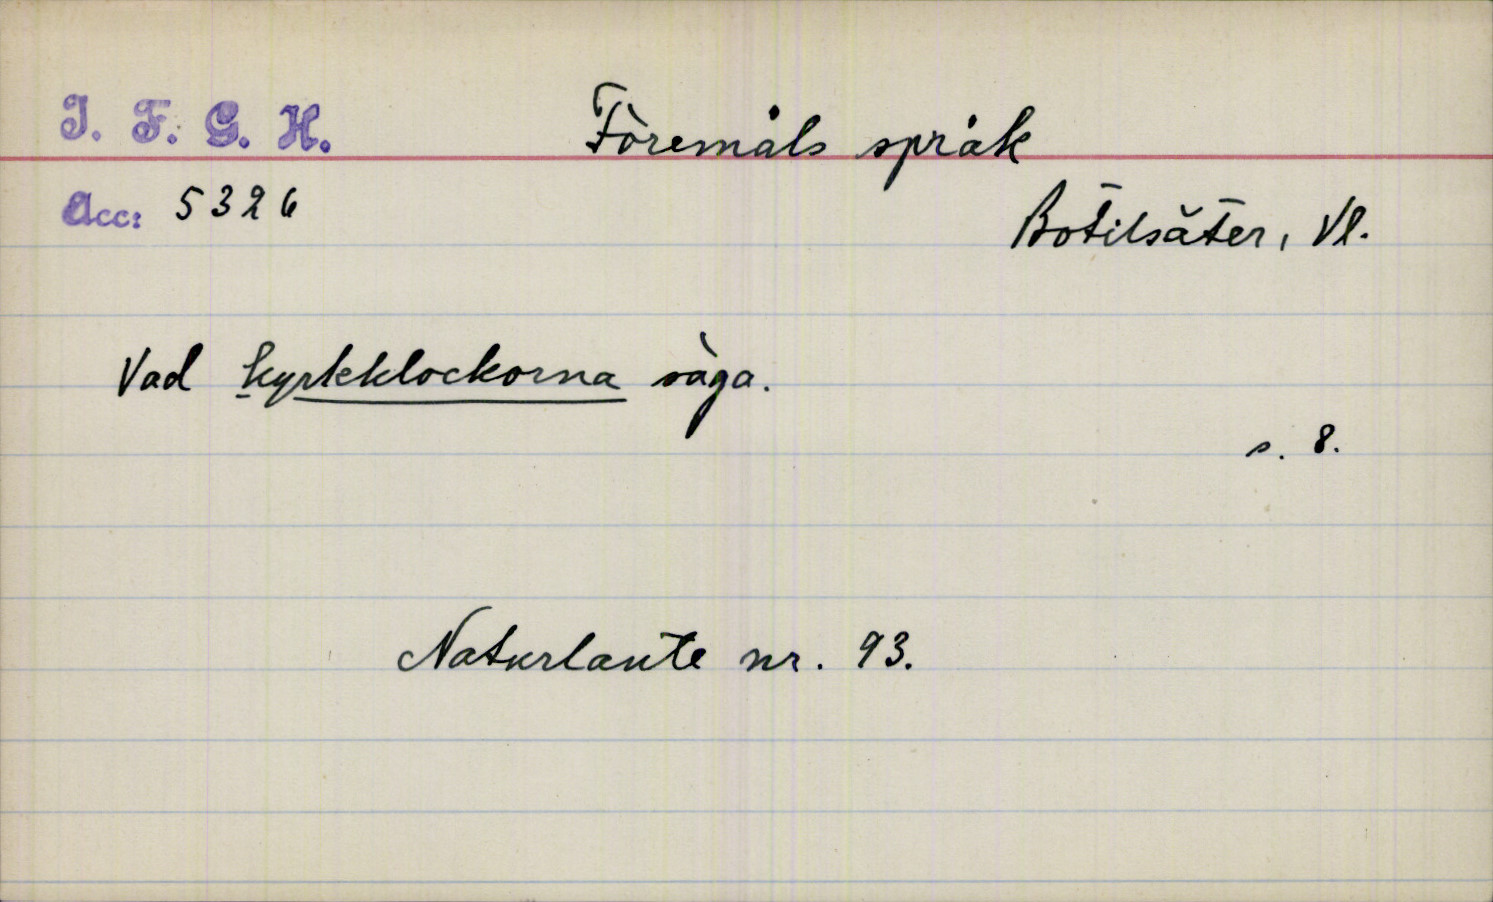 I. F. G. H.
Föremåls språk
Acc: 5326
Botilsäter, Vl.
Vad kyrkklockorna säga.
s. 8.
Naturlaute nr. 93.